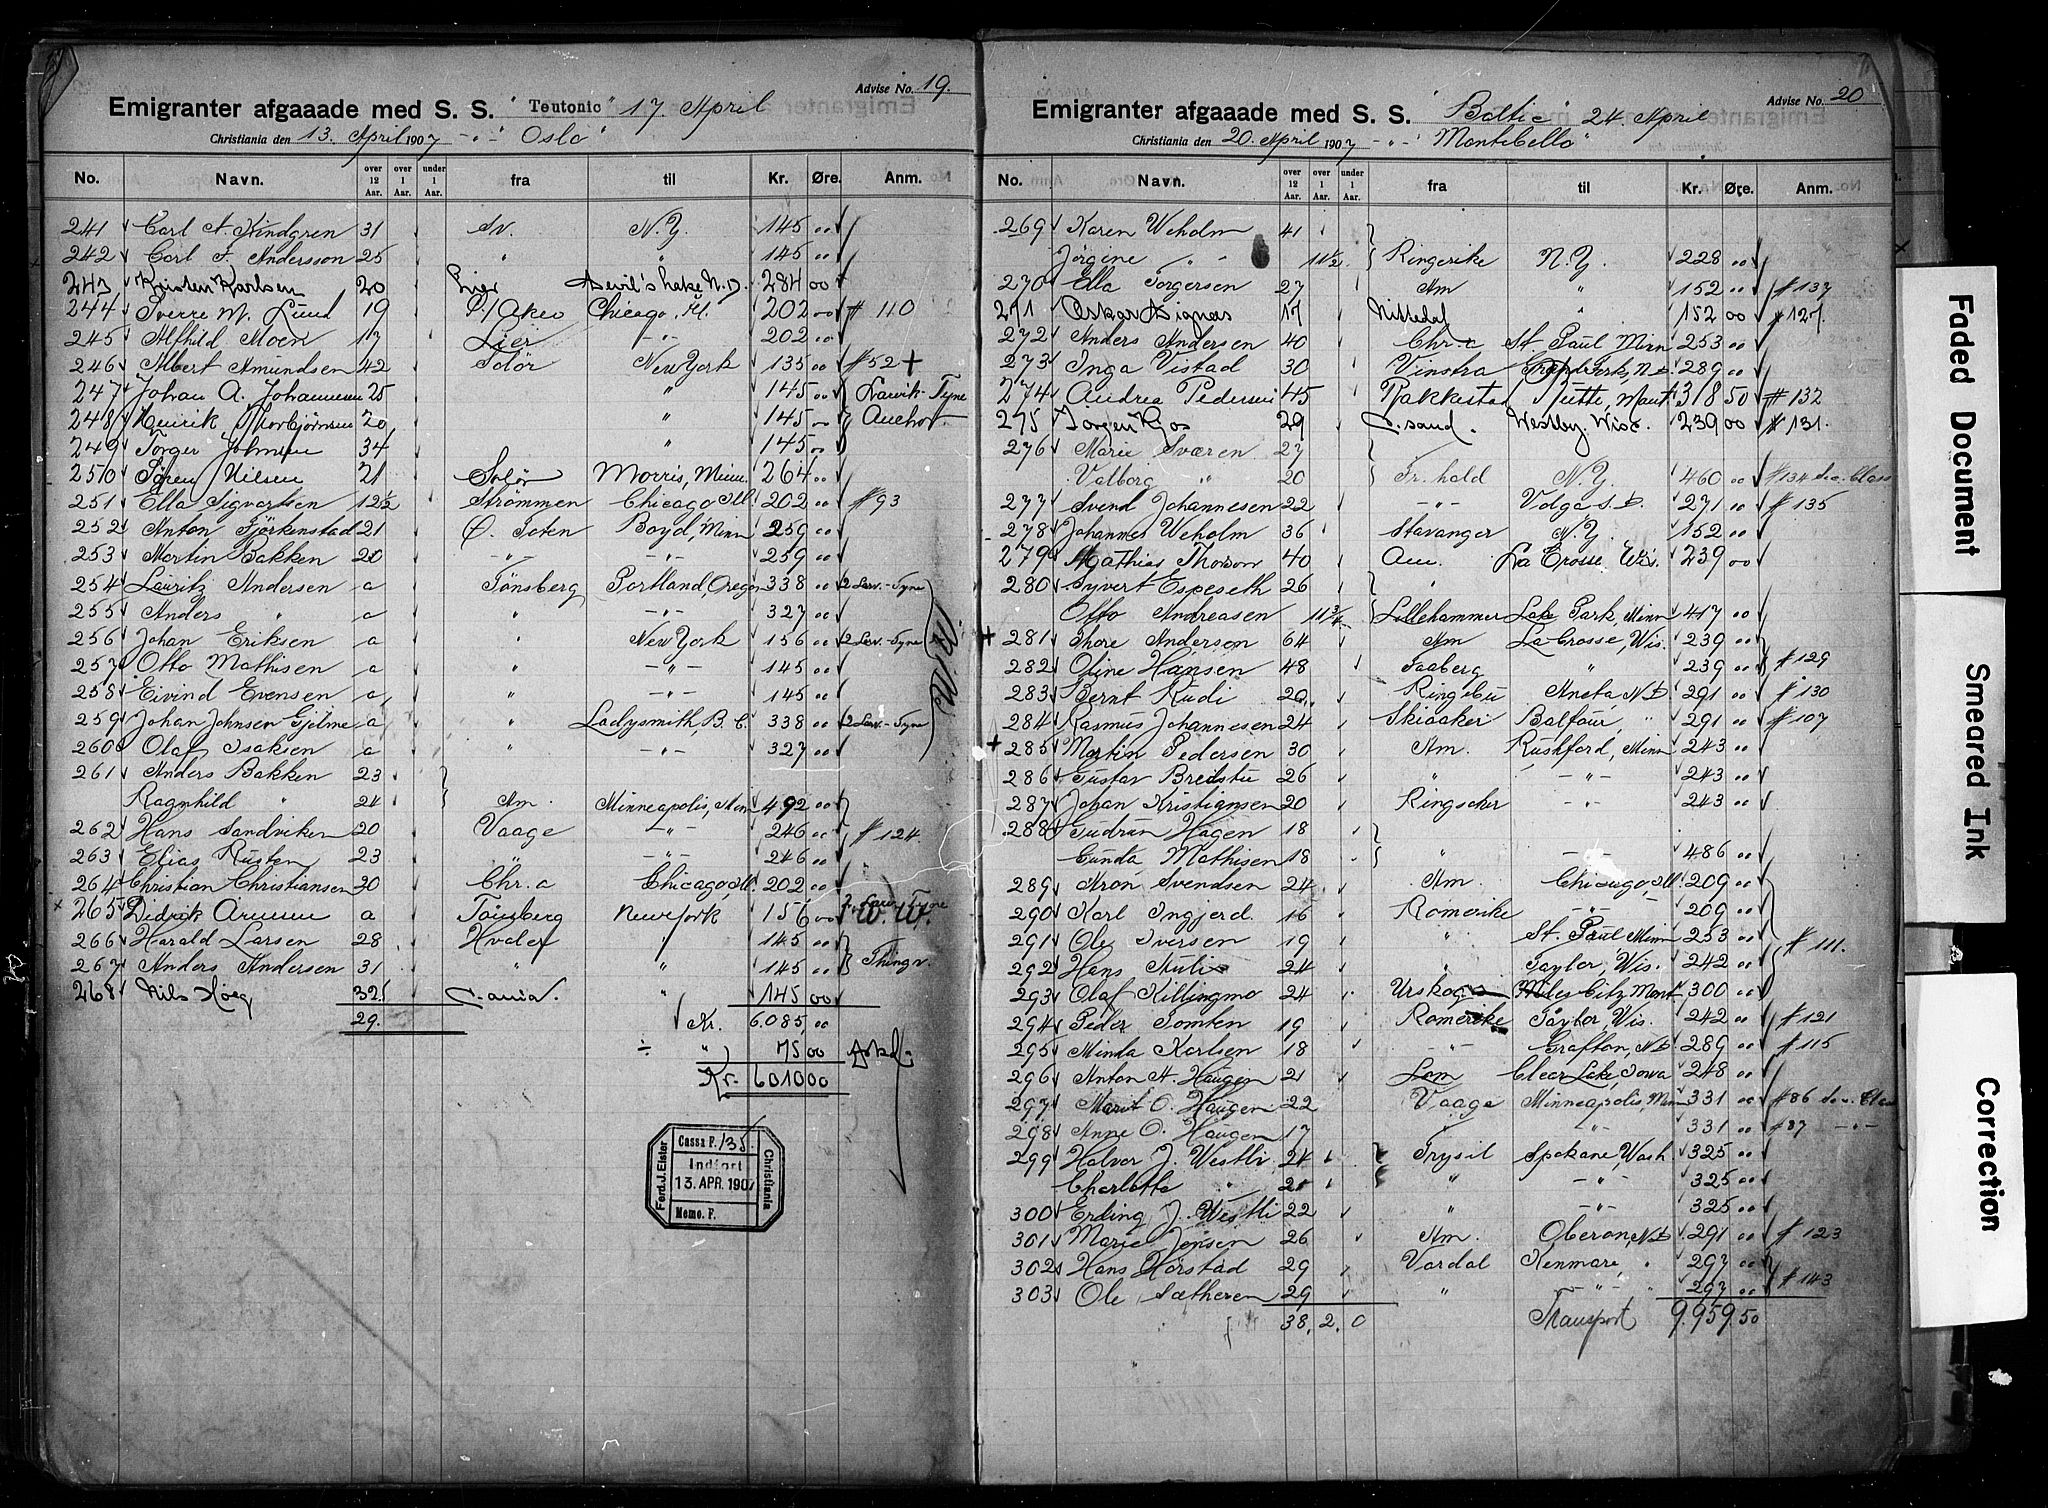 Advise No. 19.
Emigranter afgaaade med S. S. "Teutonic" 17. April
Christiania den 13. April 1907 -"- "Oslo"
No. Navn. over 12 Aar. over 1 Aar. under 1 Aar. fra til Kr. Øre. Anm.
241 Carl A. Kindgren 31 Sv. N.Y. 145 00
242 Carl F. Andersson 25 " " 145 00
243 Kristen Karlsen 20 Lier Devil's Lake N.D. 284 00
244 Sverre M. Lund 19 Chicago, Ill. 202 00 # 110
245 Alfhild Moen 17 Lier -"- 202 00
246 Albert Amundsen 42 Solør New York 135 00 #52 +
247 Johan A. Johannesen 25 " 145 00 Larvik-Tyne
248 Henrik Thorbjørnsen 20 " 145 00 Anchor.
249 Torger Johnsen 34 " 145 00
250 Søren Nilsen 21 Solør Morris, Minn. 264 00
251 Ella Sigvartsen 12½ Strømmen Chicago Ill. 202 00 # 93
252 Anton Bjørkenstad 21 Ø. Toten Boyd, Minn 259 00
253 Martin Bakken 20 -"- -"- 259 00
254 Lauritz Andersen a Tønsberg Portland, Oregon 338 00 2 Larv.-Tyne
255 Anders " a " -"- 327 00
256 Johan Eriksen a " New York 156 00 2 Larv.-Tyne
257 Otto Mathisen a " -"- 145 00
258 Eivind Evensen a " -"- 145 00
259 Johan Johnsen Gjelme a " Ladysmith, B.C. 338 00 2 Larv.-Tyne
260 Olaf Isaksen a " -"- 327 00
261 Anders Bakken 23
Ragnhild " 24 Am. Minneapolis, Minn 492 00
262 Hans Sandviken 20 Vaage -"- 246 00 # 124
263 Elias Rusten 23 -"- 246 00
264 Christian Christiansen 30 Chr.a Chicago, Ill. 202 00
265 Didrik a Tönsberg New York 156 00
266 Harald Larsen 28 Hvaler " 145 00
267 Anders Andersen 31 " " 145 00 Thingv.
268 Nils Høeg 32 " 145 00
29. Kr. 6.085,00
÷ " 75 00
Kr. 6010 00
Cassa F. 135.
Indført
13. APR. 1907
Memo. F.
Ferd. J. Elster
Christiania
Advise No. 20
Emigranter afgaaade med S. S. "Baltic" 24. April
Christiania den 20. April 1907 -"- "Montebello"
No. Navn. over 12 Aar. over 1 Aar. under 1 Aar. fra til Kr. Øre. Anm.
269 Karen Weholm 41
Jørgine " 11½ Ringerike N.Y. 228 00
270 Ella Torgersen 27 Am " 152 00 # 137
271 Oskar Signæs 17 Nittedal " 152 00 # 127.
272 Anders Andersen 40 Chr.a St. Paul Minn 253 00
273 Inga Vistad 30 Vinstra Grand Fork, N.D. 289 00
274 Andrea Pedersen 45 Rakkestad Butte, Mont 318 50 # 132
275 Jørgen Kjos 29 C.sand. Westby. Wisc. 239 00 # 131.
276 Marie Sværen 27
Valborg " 20 Fr.hald N.Y. 460 00 #134 Sec. Class
277 Svend Johannesen 22 -"- Volga S.D. 271 00 # 135
278 Johannes Weholm 36 Stavanger N.Y. 152 00
279 Mathias Thorson 40 Am. La Crosse, Wis. 239 00
280 Syvert Espeseth 26 "
Otto Andreasen 11¾ Lillehammer Lake Park, Minn 417 00
281 Thore Anderson 64 Am La Crosse, Wis. 239 00
282 Oline Hansen 48 Faaberg " 239 00 # 129
283 Bernt Rudi 20 Ringebu Aneta, N.D. 291 00 # 130
284 Rasmus Johannesen 24 Skiaaker Balfour, " 291 00 # 107
285 Martin Pedersen 30 Am. Rushford, Minn 243 00
286 Gustav Bredstu 26 " -"- 243 00
287 Johan Kristiansen 20 Ringsaker -"- 243 00
288 Gudrun Hagen 18
Gunda Mathisen 18 " -"- 486 00
289 Aron Svendsen 24 Am. Chicago, Ill. 209 00
290 Karl Ingjerd. 16 Romerike -"- 209 00
291 Ole Iversen 19 " St. Paul Minn 253 00 # 111.
292 Hans 24 " Taylor, Wis. 242 00
293 Olaf Killingmo 24 Urskog Miles City Mont 300 00
294 Peder Tomten 19 Romerike Taylor, Wis. 242 00 # 121
295 Minda Karlsen 18 -"- Grafton, N.D. 289 00 # 115
296 Anton H. Haugen 21 Lom Clear Lake, Iowa 248 00
297 Marit O. Haugen 22 Vaage Minneapolis, Minn 331 00 #86 Sec. Class
298 Anne O. Haugen 17 " -"- 331 00 #87 -"-
299 Halvor J. Westli 24 Trysil Spokane, Wash 325 00
Charlotte " 21 " -"- 325 00
300 Erling J. Westli 22 " -"- 325 00
301 Marie Jensen 26 Am. Oberon, N.D. 291 00 # 123
302 Hans Hørstad 29 Vardal Kenmare, " 297 00
303 Ole Sætheren 29 " -"- " 297 00 # 143
38. 2. 0 Transport 9.959.50
Faded Document
Smeared Ink
Correction